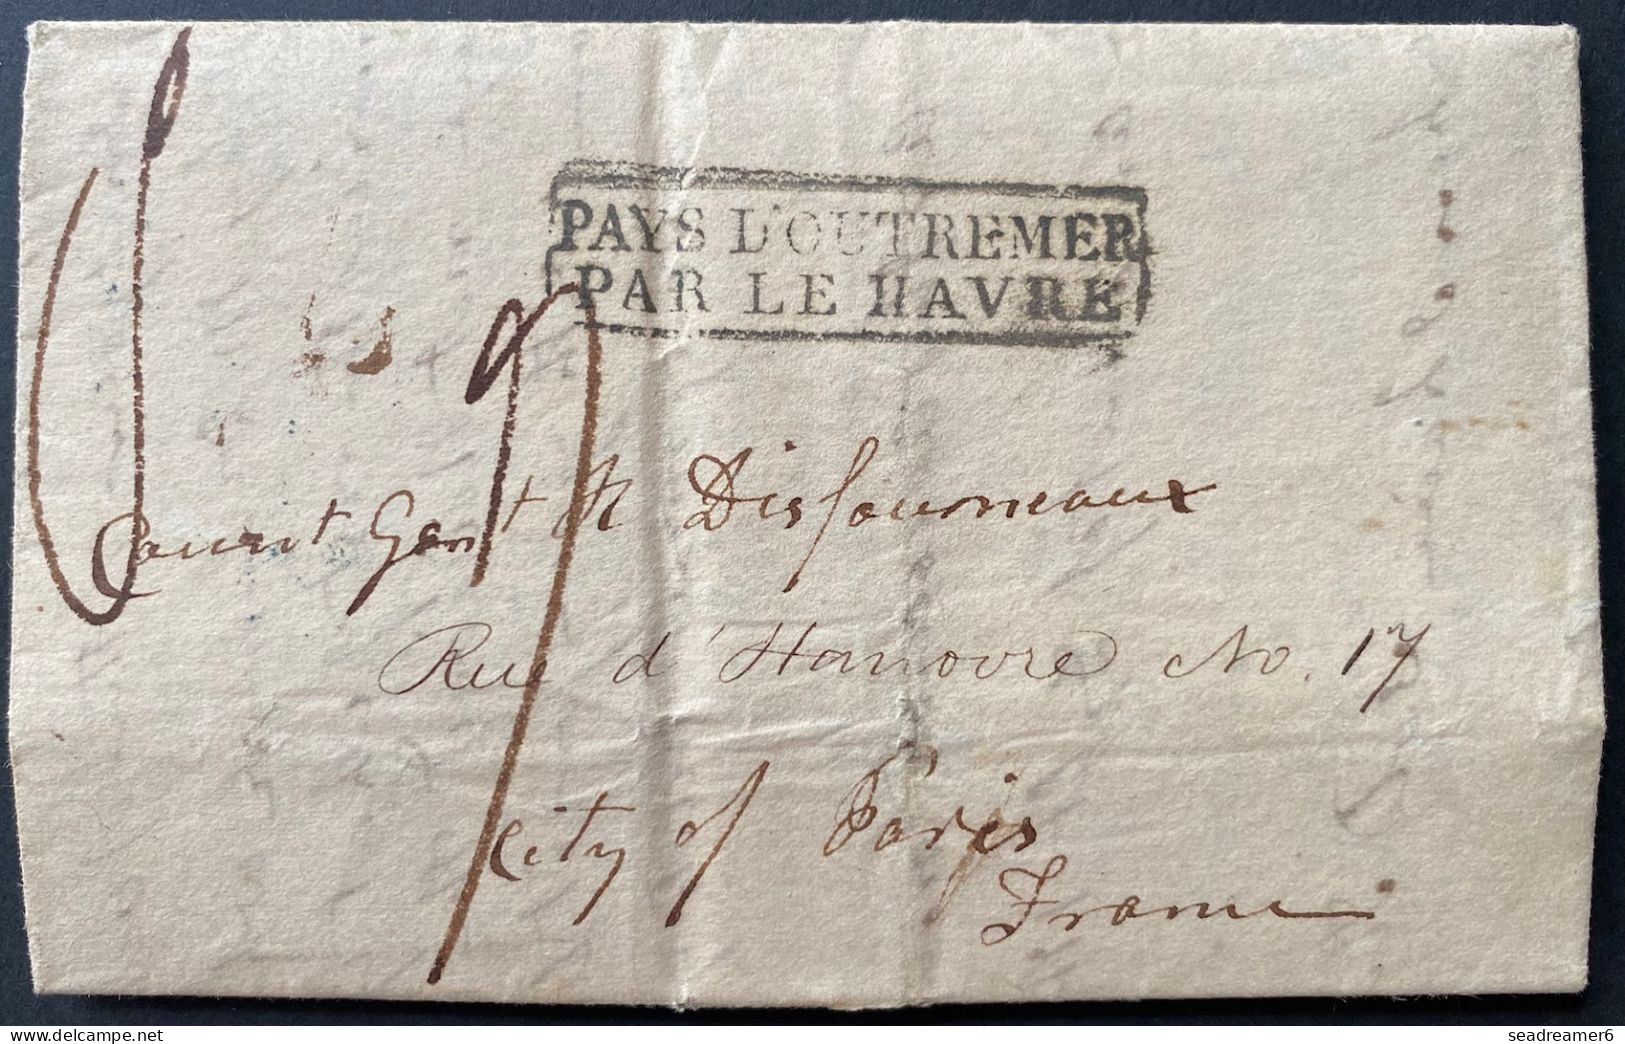 PAYS D'OUTREMER
PAR LE HAVRE
Disfourneaux
Rue d'Hanovre No. 17
City of Paris
France
seadreamer6
www.delcampe.net